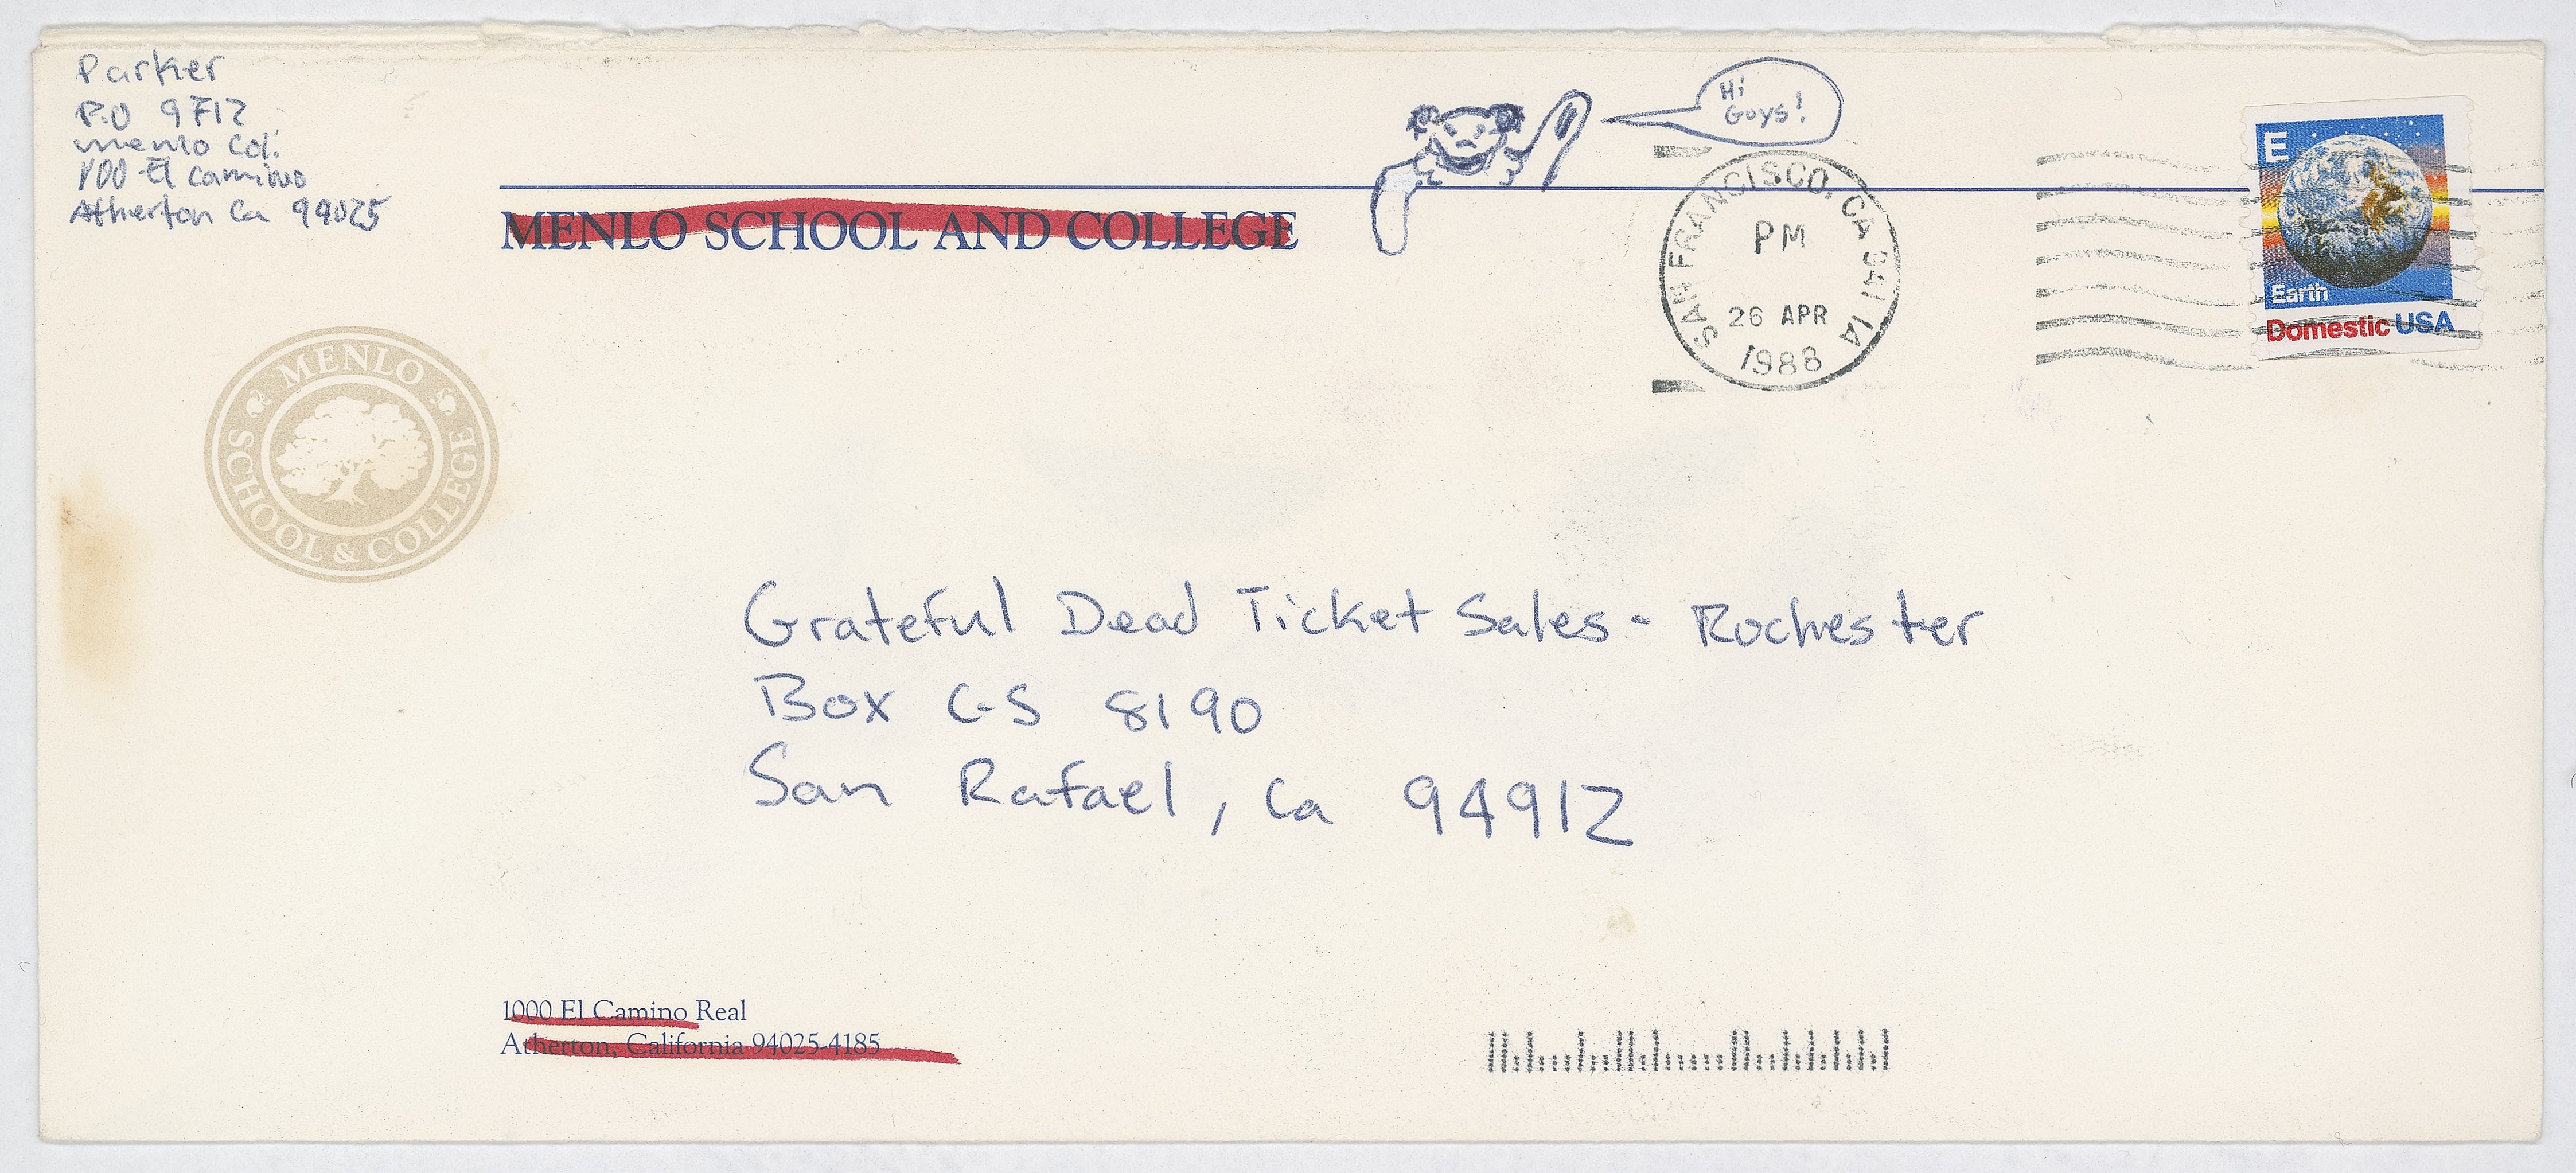 Parker
P.O 9712
Menlo Col.
100 El Camino
Atherton Ca 94025
Hi
Guys!
MENLO SCHOOL AND COLLEGE
SAN FRANCISCO, CA 941 1A
PM
26 APR
1988
E
Earth
Domestic USA
MENLO
SCHOOL & COLLEGE
Grateful Dead Ticket Sales - Rochester
Box CS 8190
San Rafael, Ca 94912
1000 El Camino Real
Atherton, California 94025-4185